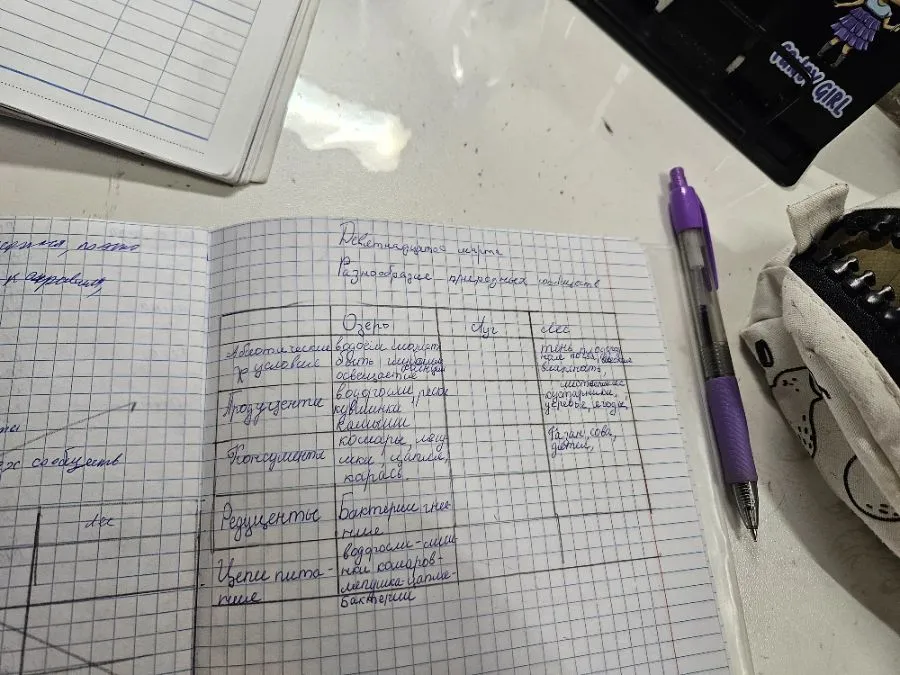 Девятнадцатое марта
Разнообразие природных сообществ
Озеро
Луг
Лес
Абиотические
условия
водоём может
быть
освещается
тень, плодоро
влажность,
Продуценты
водоросли, ряска
кувшинка
камыши
кустарники,
деревья, ягоды,
Консументы
комары, лягу
шки, цапля,
карась.
Фазан, сова,
дятел,
Редуценты
Бактерии гние
ния
Цепи пита-
ния
водоросли-личи
нки комаров-
лягушка-цапля-
бактерии
сообществ
Лес
GIRL